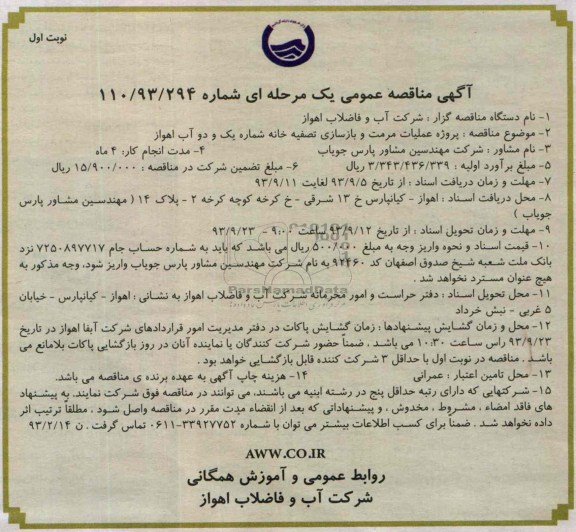 نوبت اول
آگهی مناقصه عمومی یک مرحله ای شماره ۱۱۰/۹۳/۲۹۴
۱- نام دستگاه مناقصه گزار : شرکت آب و فاضلاب اهواز
۲- موضوع مناقصه : پروژه عملیات مرمت و بازسازی تصفیه خانه شماره یک و دو آب اهواز
۳- نام مشاور : شرکت مهندسین مشاور پارس جویاب ۴- مدت انجام کار: ۴ ماه
۵- مبلغ برآورد اولیه : ۳/۳۴۳/۴۳۶/۳۳۹ ریال ۶- مبلغ تضمین شرکت در مناقصه : ۱۵/۹۰۰/۰۰۰ ریال
۷- مهلت و زمان دریافت اسناد : از تاریخ ۹۳/۹/۵ لغایت ۹۳/۹/۱۱
۸- محل دریافت اسناد : اهواز - کیانپارس خ ۱۳ شرقی - خ کرخه کوچه کرخه ۲ - پلاک ۱۴ ( مهندسین مشاور پارس
جویاب )
۹- مهلت و زمان تحویل اسناد : از تاریخ ۹۳/۹/۱۲ ساعت ۹:۰۰ - ۹۳/۹/۲۳
۱۰- قیمت اسناد و نحوه واریز وجه به مبلغ ۵۰۰/۰۰۰ ریال می باشد که باید به شماره حساب جام ۷۲۵۰۸۹۷۷۱۷ نزد
بانک ملت شعبه شیخ صدوق اصفهان کد ۹۴۴۶۰ به نام شرکت مهندسین مشاور پارس جویاب واریز شود، وجه مذکور به
هیچ عنوان مسترد نخواهد شد .
ParsNamadData
۱۱- محل تحویل اسناد : دفتر حراست و امور محرمانه شرکت آب و فاضلاب اهواز به نشانی : اهواز - کیانپارس - خیابان
۵ غربی - نبش خرداد
۱۲- محل و زمان گشایش پیشنهادها : زمان گشایش پاکات در دفتر مدیریت امور قراردادهای شرکت آبفا اهواز در تاریخ
۹۳/۹/۲۳ راس ساعت ۱۰:۳۰ می باشد . ضمناً حضور شرکت کنندگان یا نماینده آنان در روز بازگشایی پاکات بلامانع می
باشد . مناقصه در نوبت اول با حداقل ۳ شرکت کننده قابل بازگشایی خواهد بود .
۱۳- محل تامین اعتبار : عمرانی ۱۴- هزینه چاپ آگهی به عهده برنده ی مناقصه می باشد.
۱۵- شرکتهایی که دارای رتبه حداقل پنج در رشته ابنیه می باشند، می توانند در مناقصه فوق شرکت نمایند. به پیشنهاد
های فاقد امضاء ، مشروط ، مخدوش ، و پیشنهاداتی که بعد از انقضاء مدت مقرر در مناقصه واصل شود ، مطلقاً ترتیب اثر
داده نخواهد شد . ضمناً برای کسب اطلاعات بیشتر می توان با شماره ۳۳۹۲۷۷۵۲-۰۶۱۱ تماس گرفت . ن ۹۳/۲/۱۴
AWW.CO.IR
روابط عمومی و آموزش همگانی
شرکت آب و فاضلاب اهواز